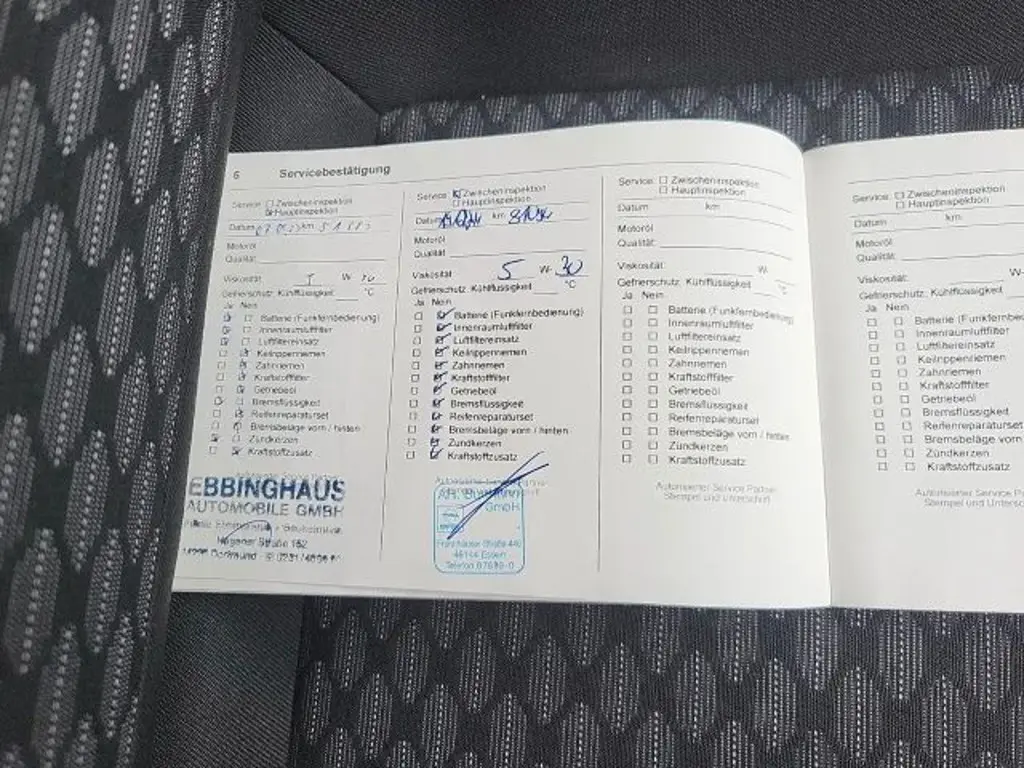 6 Servicebestätigung
Service: Zwischeninspektion
Hauptinspektion
Datum km
Motoröl
Qualität:
Viskosität W-
Gefrierschutz, Kühlflüssigkeit °C
Ja Nein
Batterie (Funkfernbedienung)
Innenraumluftfilter
Luftfiltereinsatz
Keilrippenriemen
Zahnriemen
Kraftstofffilter
Getriebeöl
Bremsflüssigkeit
Reifenreparaturset
Bremsbeläge vorn / hinten
Zündkerzen
Kraftstoffzusatz
EBBINGHAUS
AUTOMOBILE GMBH
Hagener Straße
Dortmund
Service: Zwischeninspektion
Hauptinspektion
Datum km
Motoröl
Qualität:
Viskosität 5 W- 30
Gefrierschutz, Kühlflüssigkeit °C
Ja Nein
Batterie (Funkfernbedienung)
Innenraumluftfilter
Luftfiltereinsatz
Keilrippenriemen
Zahnriemen
Kraftstofffilter
Getriebeöl
Bremsflüssigkeit
Reifenreparaturset
Bremsbeläge vorn / hinten
Zündkerzen
Kraftstoffzusatz
GmbH
Essen
Telefon
Service: Zwischeninspektion
Hauptinspektion
Datum km
Motoröl
Qualität:
Viskosität: W-
Gefrierschutz, Kühlflüssigkeit °C
Ja Nein
Batterie (Funkfernbedienung)
Innenraumluftfilter
Luftfiltereinsatz
Keilrippenriemen
Zahnriemen
Kraftstofffilter
Getriebeöl
Bremsflüssigkeit
Reifenreparaturset
Bremsbeläge vorn / hinten
Zündkerzen
Kraftstoffzusatz
Autorisierter Service Partner
Stempel und Unterschrift
Service: Zwischeninspektion
Hauptinspektion
Datum km
Motoröl
Qualität:
Viskosität: W-
Gefrierschutz, Kühlflüssigkeit
Ja Nein
Batterie (Funkfernbedienung)
Innenraumluftfilter
Luftfiltereinsatz
Keilrippenriemen
Zahnriemen
Kraftstofffilter
Getriebeöl
Bremsflüssigkeit
Reifenreparaturset
Bremsbeläge vorn / hinten
Zündkerzen
Kraftstoffzusatz
Autorisierter Service
Stempel und